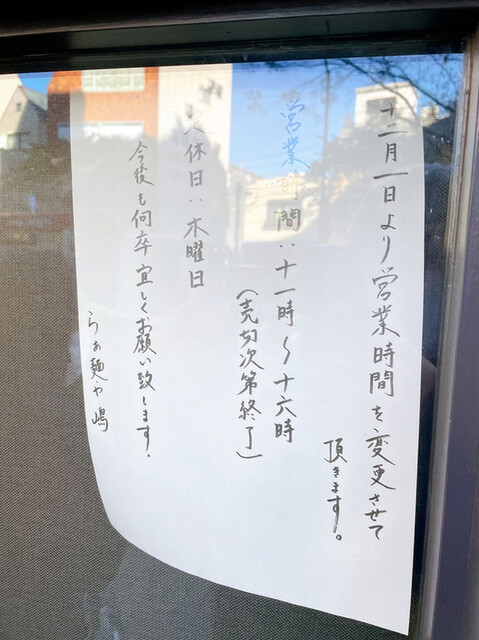 十一月一日より営業時間を変更させて
頂きます。
営業時間:十一時〜十六時
(売切次第終了)
定休日:木曜日
今後も何卒宜しくお願い致します。
らぁ麺や嶋